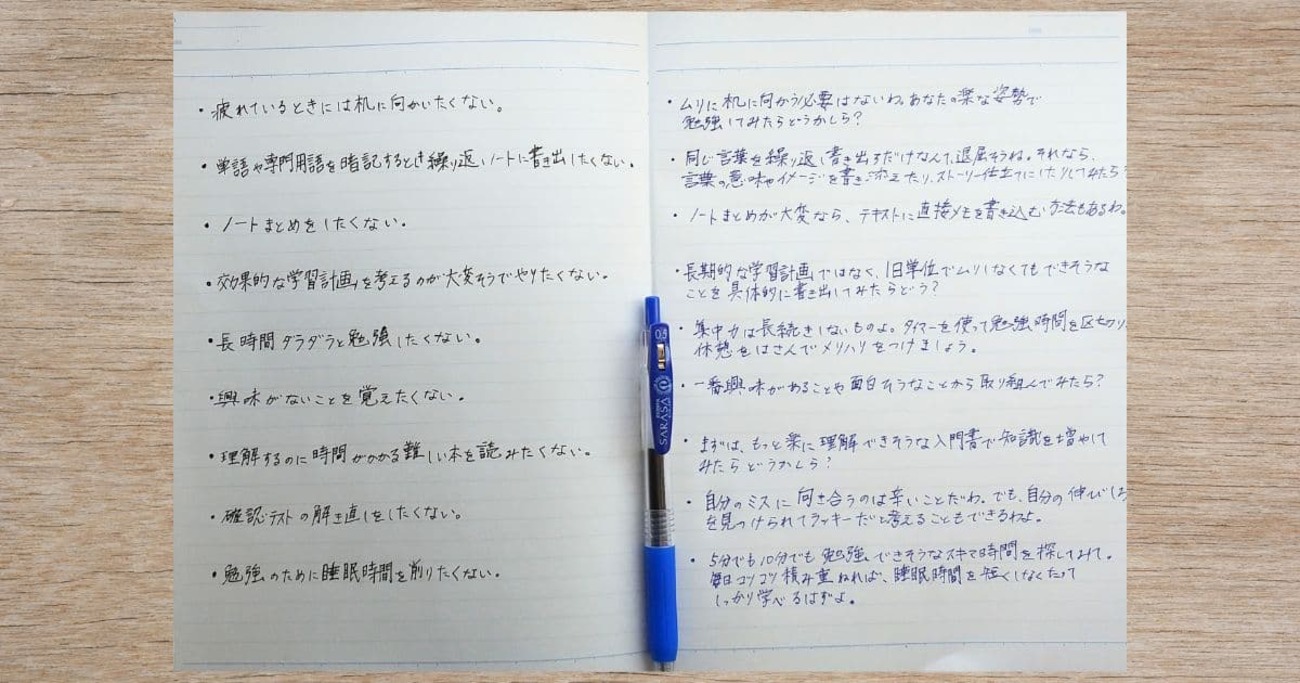 ・疲れているときには机に向かいたくない。
・単語や専門用語を暗記するとき繰り返しノートに書き出したくない。
・ノートまとめをしたくない。
・効果的な学習計画を考えるのが大変そうでやりたくない。
・長時間ダラダラと勉強したくない。
・興味がないことを覚えたくない。
・理解するのに時間がかかる難しい本を読みたくない。
・確認テストの解き直しをしたくない。
・勉強のために睡眠時間を削りたくない。
・ムリに机に向かう必要はないわ。あなたの楽な姿勢で
勉強してみたらどうかしら?
・同じ言葉を繰り返し書き出すだけなんて、退屈そうね。それなら、
言葉の意味やイメージを書き添えたり、ストーリー仕立てにしたりしてみたら?
・ノートまとめが大変なら、テキストに直接メモを書き込む方法もあるわ。
・長期的な学習計画ではなく、1日単位でムリしなくてもできそうな
ことを具体的に書き出してみたらどう?
・集中力は長続きしないものよ。タイマーを使って勉強時間を区切り、
休憩をはさんでメリハリをつけましょう。
・一番興味があることや面白そうなことから取り組んでみたら?
・まずは、もっと楽に理解できそうな入門書で知識を増やして
みたらどうかしら?
・自分のミスに向き合うのは辛いことだわ。でも、自分の伸びしろ
を見つけられてラッキーだと考えることもできるわよ。
・5分でも10分でも勉強できそうなスキマ時間を探してみて。
毎日コツコツ積み重ねれば、睡眠時間を短くしなくたって
しっかり学べるはずよ。
0.4
SARASA